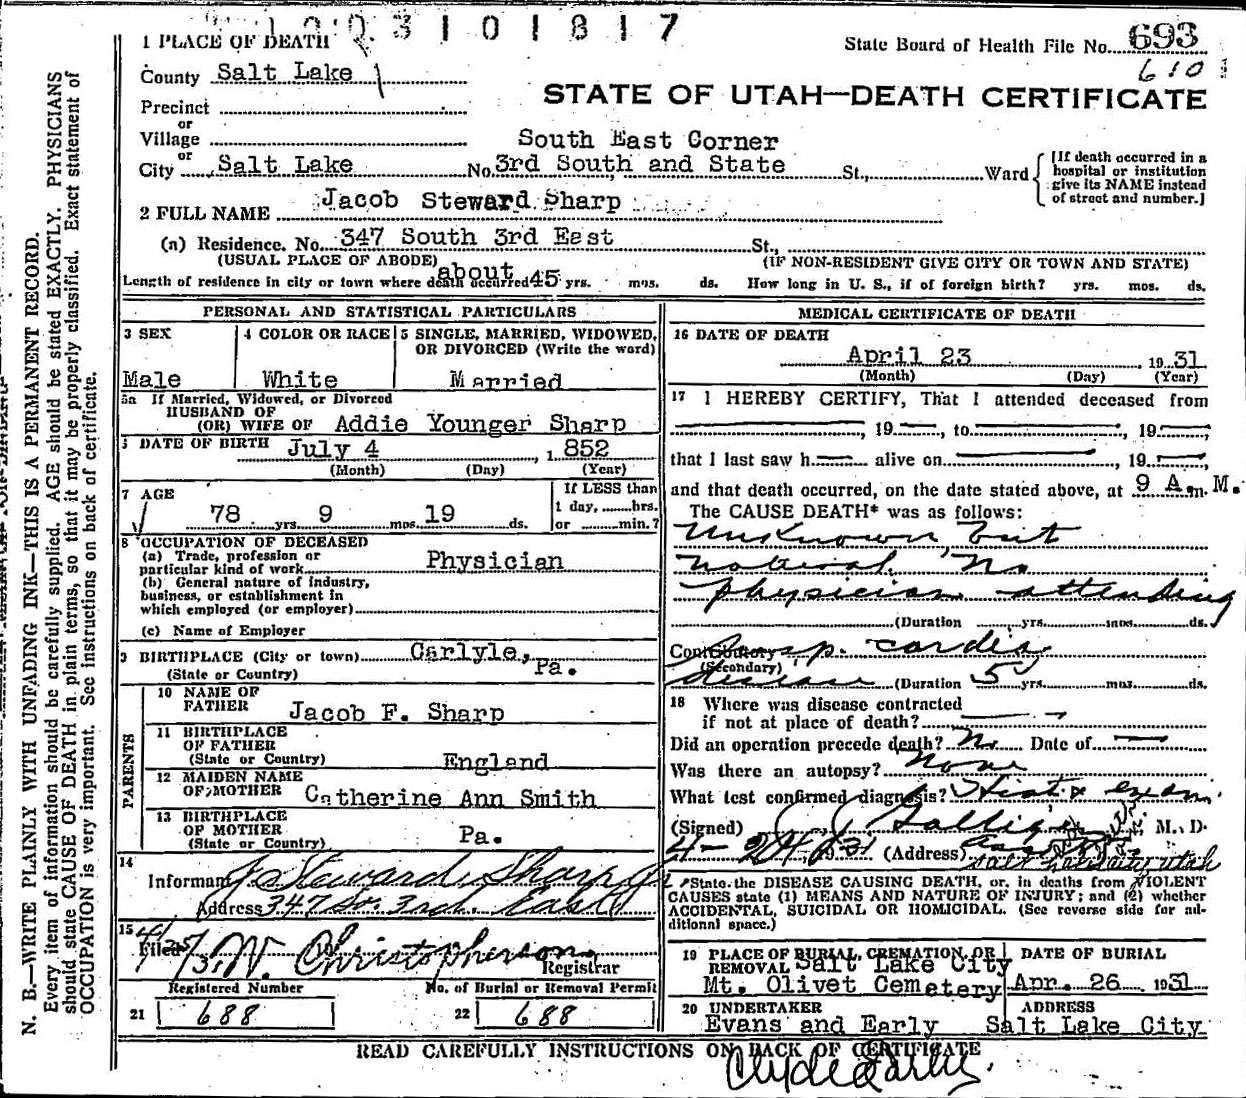 3 1 0 1 8 1 7
1 PLACE OF DEATH
State Board of Health File No. 693
610
County Salt Lake
STATE OF UTAH—DEATH CERTIFICATE
Precinct
or
Village
South East Corner
or
City Salt Lake No. 3rd South and State St., Ward
[If death occurred in a
hospital or institution
give its NAME instead
of street and number.]
2 FULL NAME Jacob Steward Sharp
(a) Residence. No. 347 South 3rd East St.,
(USUAL PLACE OF ABODE) (IF NON-RESIDENT GIVE CITY OR TOWN AND STATE)
Length of residence in city or town where death occurred about 45 yrs. mos. ds. How long in U. S., if of foreign birth? yrs. mos. ds.
PERSONAL AND STATISTICAL PARTICULARS
3 SEX
Male
4 COLOR OR RACE
White
5 SINGLE, MARRIED, WIDOWED,
OR DIVORCED (Write the word)
Married
5a If Married, Widowed, or Divorced
HUSBAND OF
(OR) WIFE OF Addie Younger Sharp
DATE OF BIRTH July 4, 1852
(Month) (Day) (Year)
7 AGE
78 yrs. 9 mos. 19 ds.
If LESS than
1 day, hrs.
or min.?
8 OCCUPATION OF DECEASED
(a) Trade, profession or
particular kind of work Physician
(b) General nature of industry,
business, or establishment in
which employed (or employer)
(c) Name of Employer
9 BIRTHPLACE (City or town) Carlyle,
(State or Country) Pa.
PARENTS
10 NAME OF
FATHER Jacob F. Sharp
11 BIRTHPLACE
OF FATHER
(State or Country) England
12 MAIDEN NAME
OF MOTHER Catherine Ann Smith
13 BIRTHPLACE
OF MOTHER
(State or Country) Pa.
14
Informant J Steward Sharp Jr
Address 347 So. 3rd. East
15 Filed
Christopherson
Registrar
Registered Number
21 688
No. of Burial or Removal Permit
22 688
MEDICAL CERTIFICATE OF DEATH
16 DATE OF DEATH
April 23 1931
(Month) (Day) (Year)
17 I HEREBY CERTIFY, That I attended deceased from
, 19 , to , 19 ,
that I last saw h alive on , 19 ,
and that death occurred, on the date stated above, at 9 A. m. M.
The CAUSE DEATH* was as follows:
Unknown but
natural No
physician attending
(Duration yrs. mos. ds.
Contributory cardia
(Secondary)
disease (Duration 5 yrs. mos. ds.
18 Where was disease contracted
if not at place of death?
Did an operation precede death? No Date of
Was there an autopsy? None
What test confirmed diagnosis? Hist & exam.
(Signed) , M. D.
4-24 1931 (Address)
Salt Lake City Utah
*State the DISEASE CAUSING DEATH, or, in deaths from VIOLENT
CAUSES state (1) MEANS AND NATURE OF INJURY; and (2) whether
ACCIDENTAL, SUICIDAL OR HOMICIDAL. (See reverse side for ad-
ditional space.)
19 PLACE OF BURIAL, CREMATION, OR
REMOVAL Salt Lake City
Mt. Olivet Cemetery
DATE OF BURIAL
Apr. 26 1931
20 UNDERTAKER
Evans and Early
ADDRESS
Salt Lake City
READ CAREFULLY INSTRUCTIONS ON BACK OF CERTIFICATE
Clyde Early
N. B.—WRITE PLAINLY WITH UNFADING INK—THIS IS A PERMANENT RECORD.
Every item of information should be carefully supplied. AGE should be stated EXACTLY. PHYSICIANS
should state CAUSE OF DEATH in plain terms, so that it may be properly classified. Exact statement of
OCCUPATION is very important. See Instructions on back of certificate.